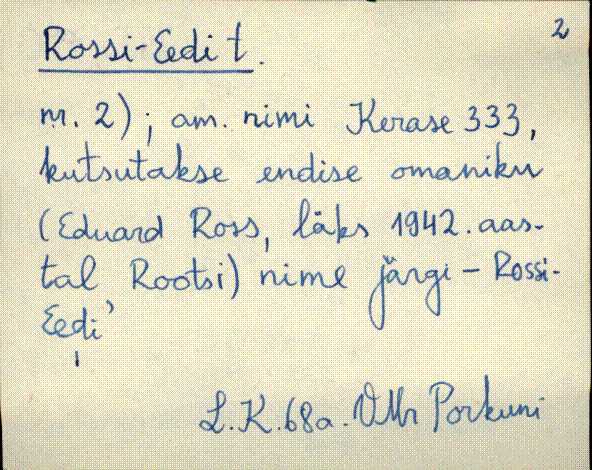 2
Rossi-Eedi t.
nr. 2); am. nimi Kerase 333,
kutsutakse endise omaniku
(Eduard Ross, läks 1942. aas-
tal Rootsi) nime järgi – Rossi-
Eedi'
L.K. 68a. VMr Porkuni